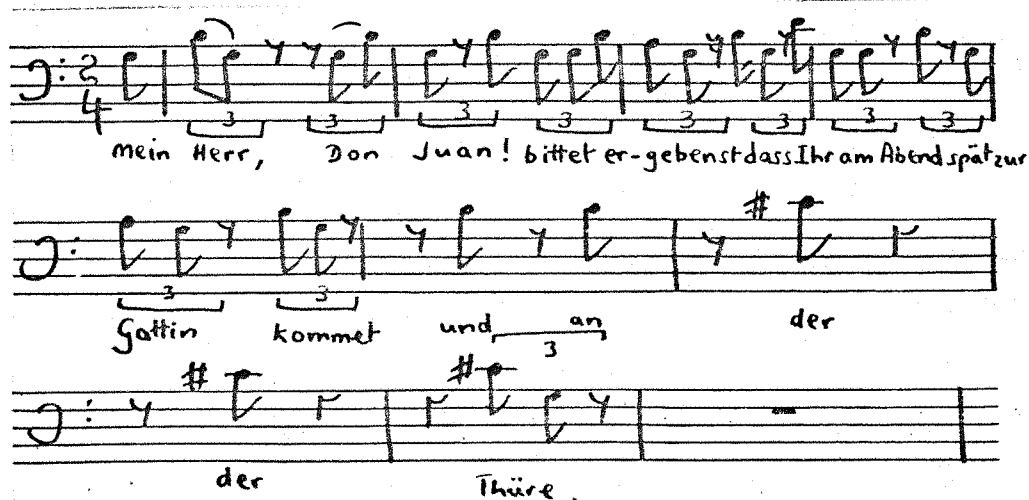 2
4
3 3 3 3 3 3 3 3
Mein Herr, Don Juan! bittet er-gebenst dass Ihr am Abend spät zur
3 3
Gattin kommet und an der
3
der Thüre.